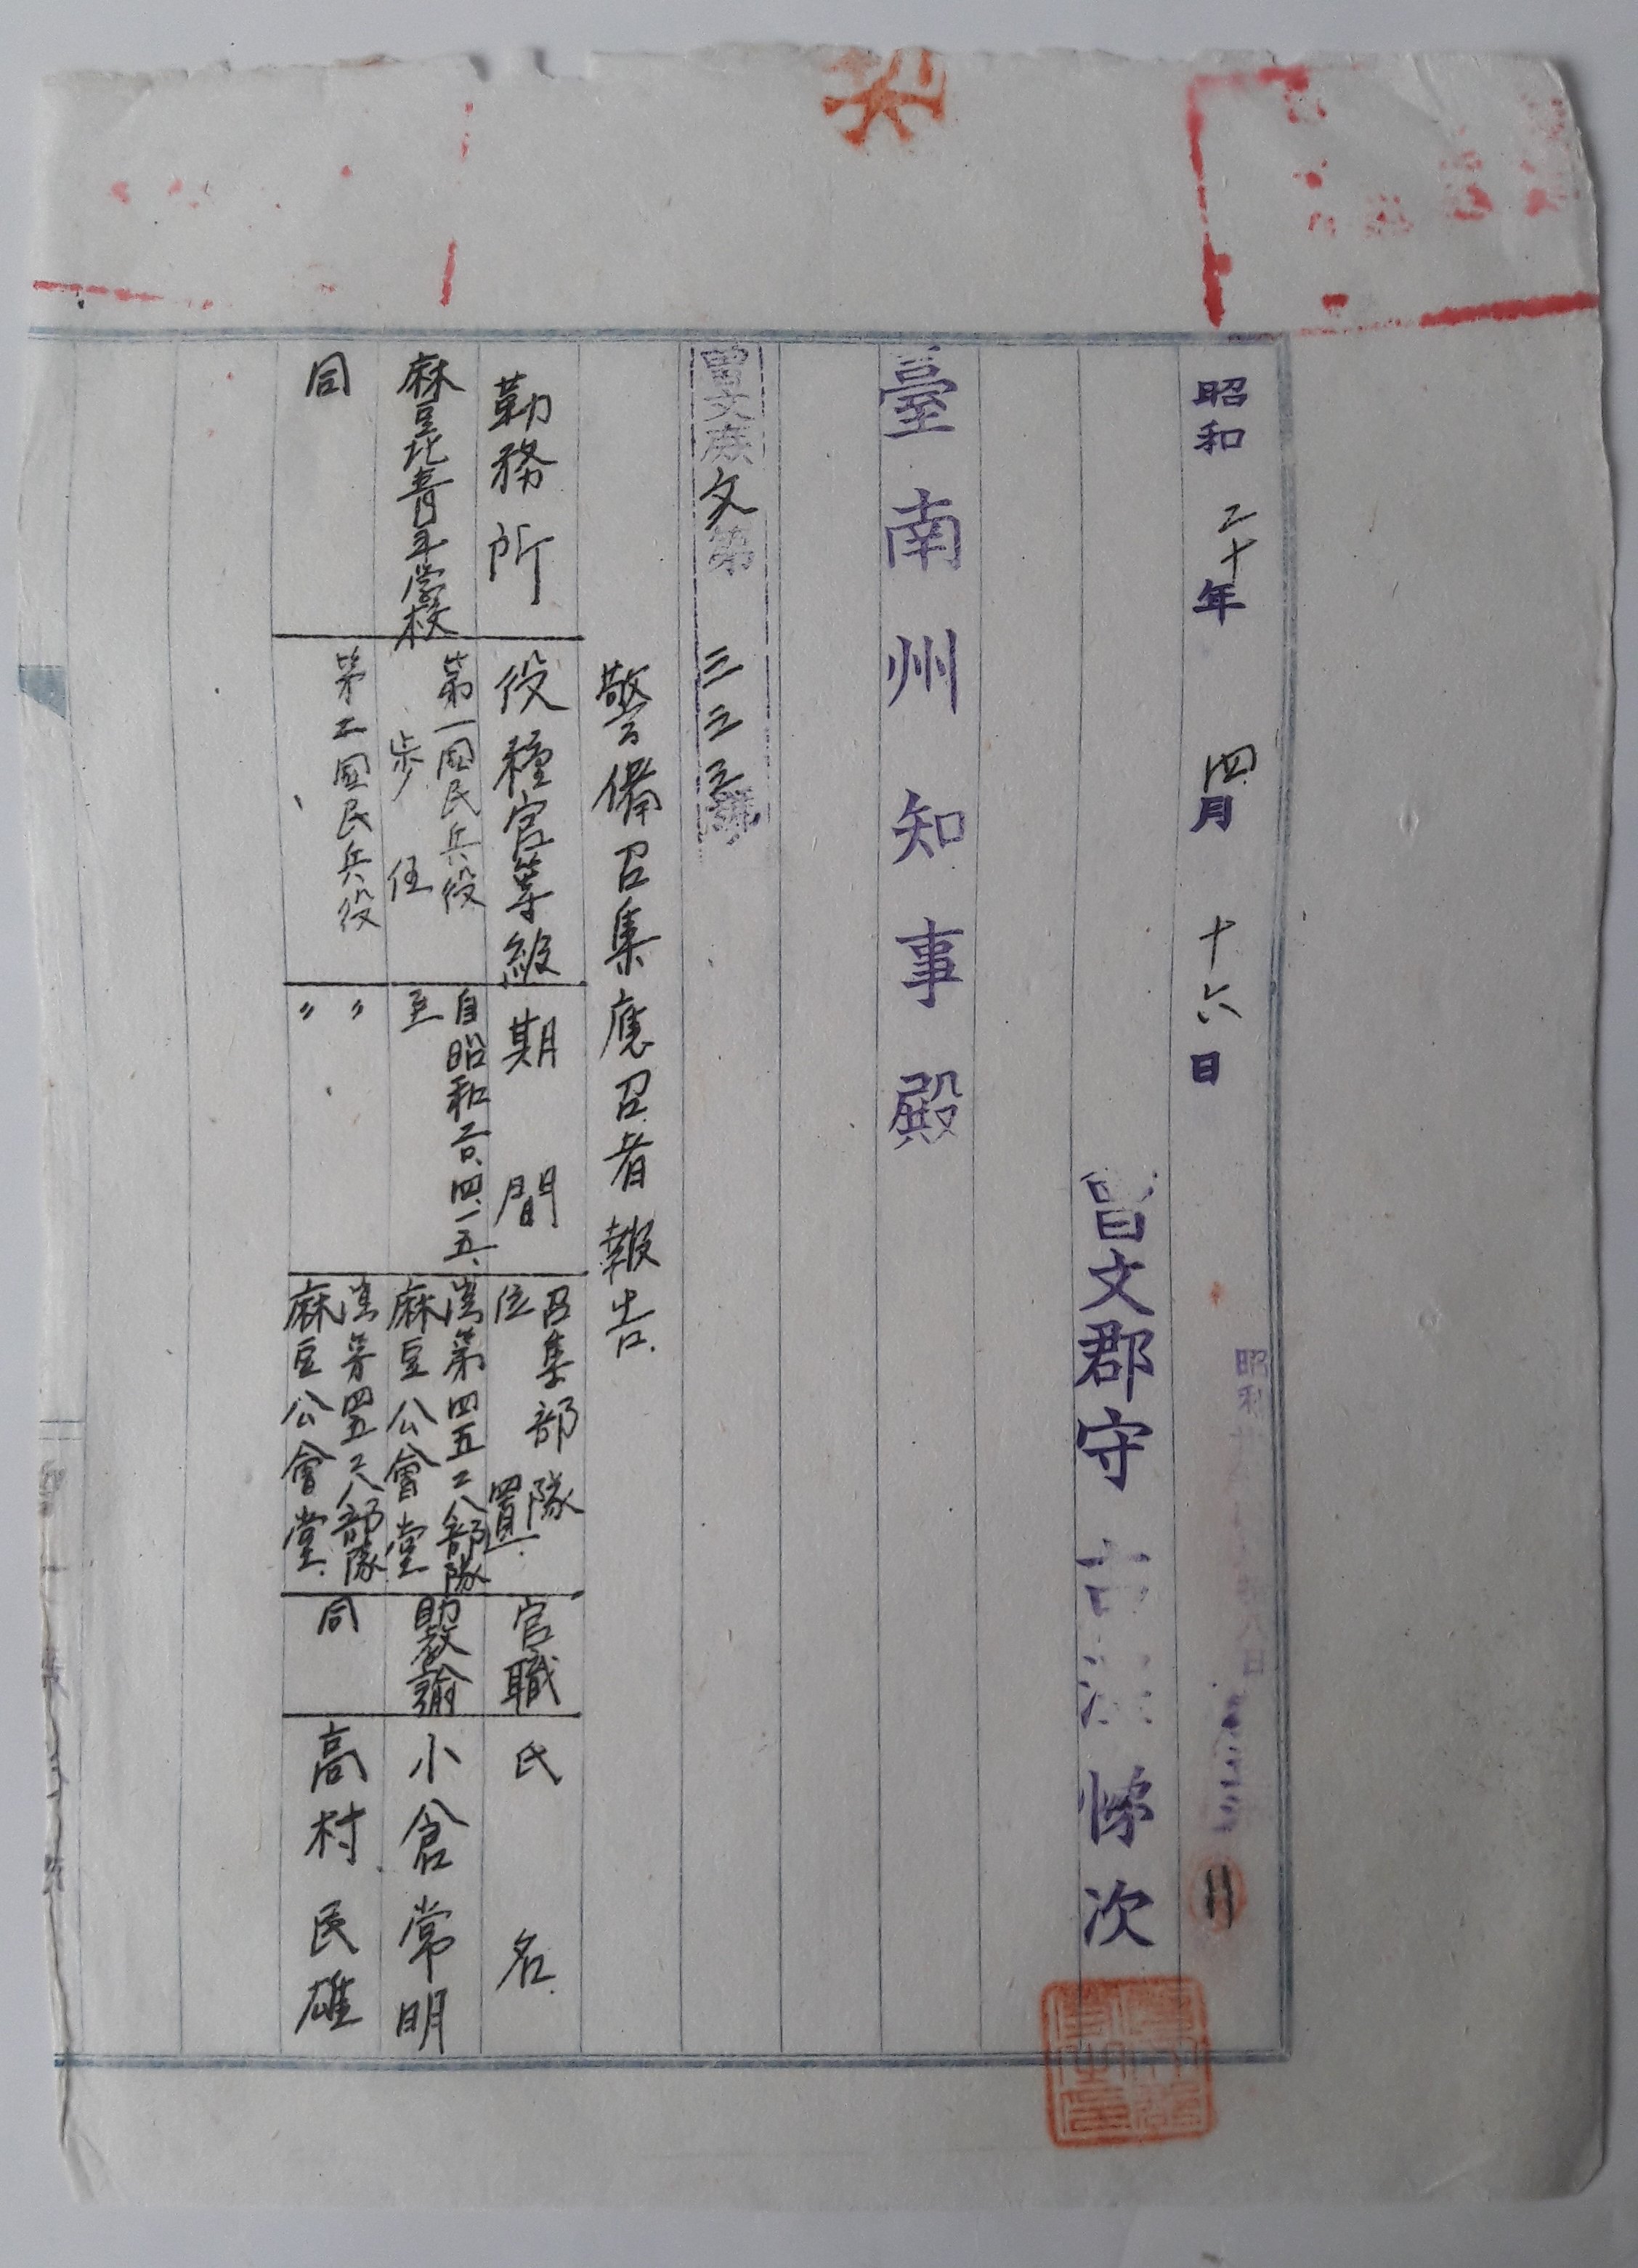 昭和二十年四月十六日
曾文郡守 悌次
臺南州知事殿
曾文庶文第三三三號
警備召集應召者報告
勤務所 役種官等級 期間 召集部隊位置 官職 氏名
麻豆北青年學校 第一國民兵役 自昭和二〇、四、一五、至 湾第四五二八部隊 麻豆公會堂 助教諭 小倉常明
同 第二國民兵役 〃 〃 湾第四五二八部隊 麻豆公會堂 同 高村民雄